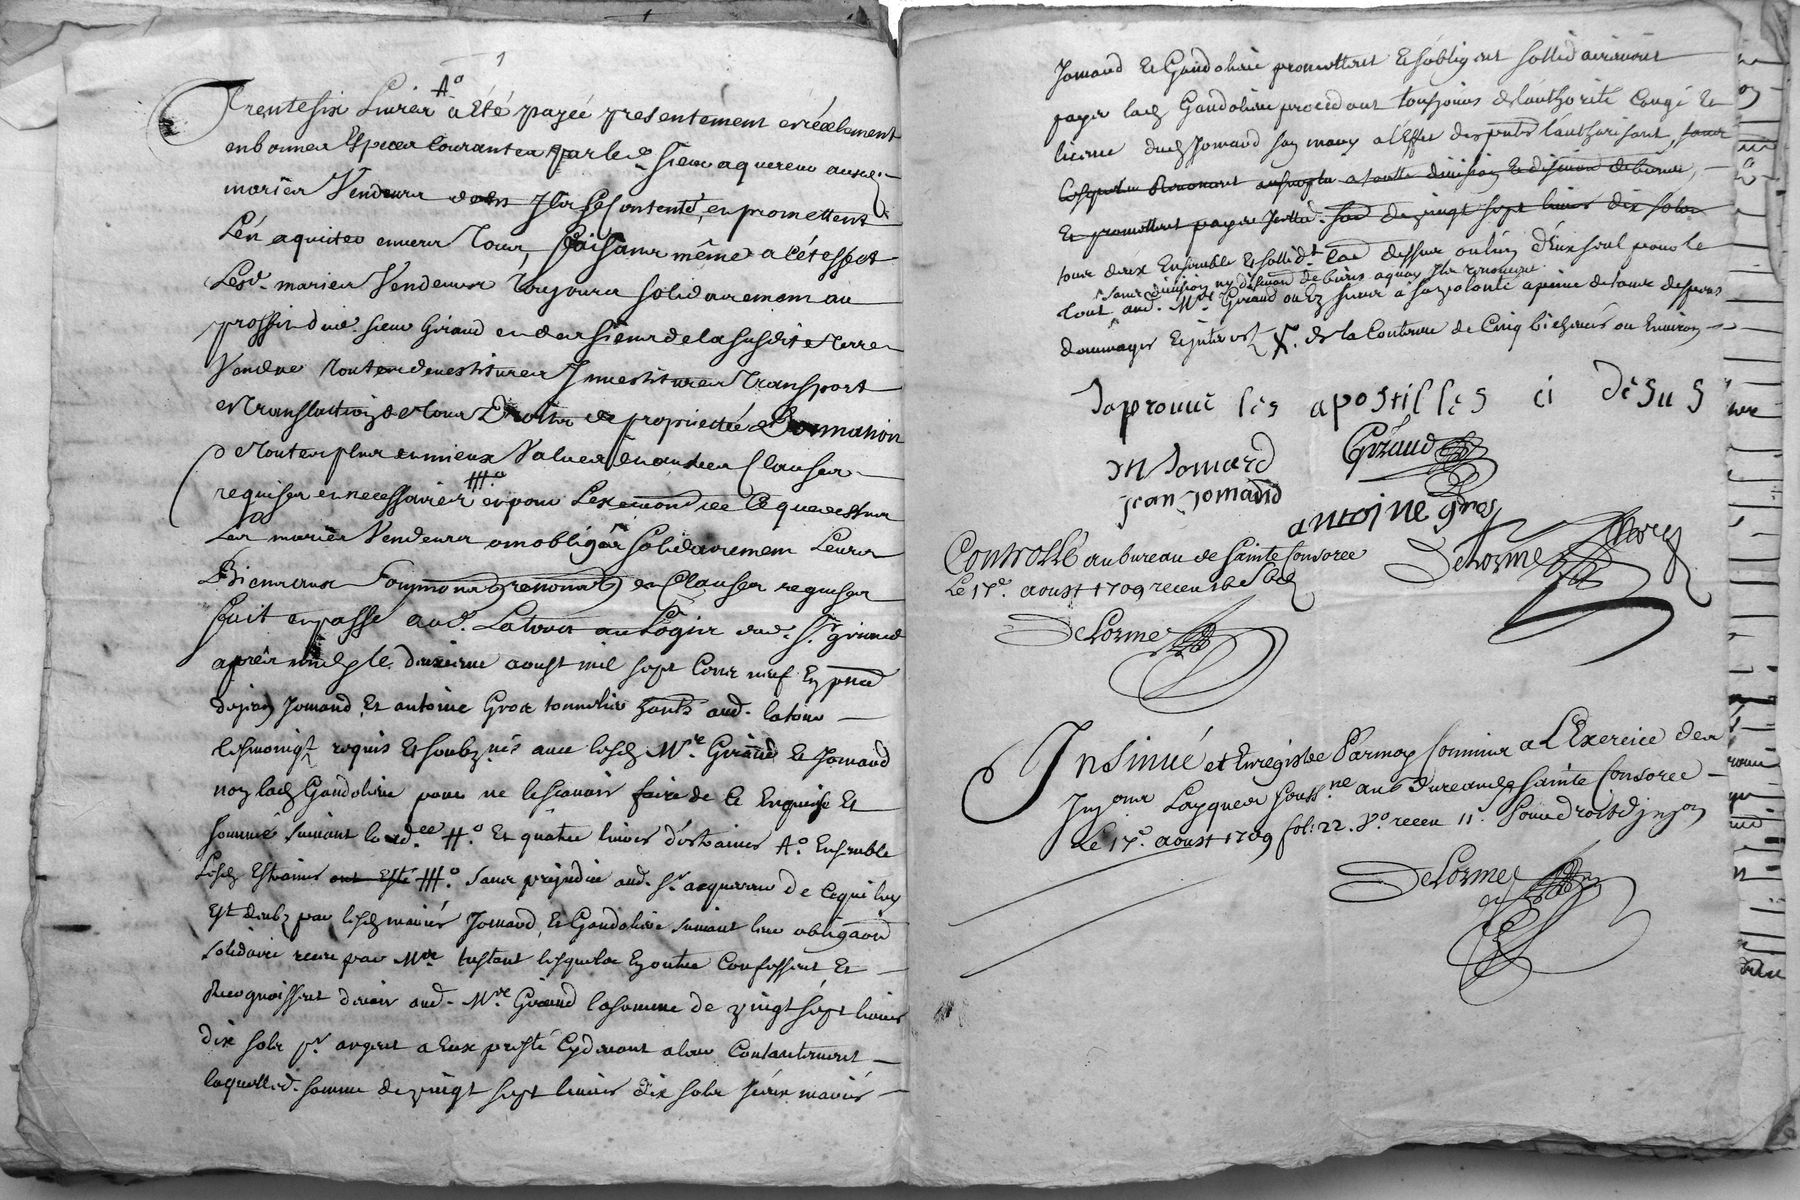 Trentesix Livres A° a été payéé presentement et réelement
en bonnes Especes Courantes par led. sieur aquereur ausd.
mariés Vendeurs dont Ils se Contente et promettent
L'én aquiter envers tous, faisans même a cét effet
Lesd. mariés Vendeurs toujours solidairement au
proffit dud. sieur Giraud et des siens de la susdite terre
Vendue toutes devestitures Investitures transport
et translation de tous Droits de proprieté et
et toutes plus ou mieux Values et autres Clauses
requises et necessaires III° et pour L'exemon de ce que dessus
Les mariés Vendeurs ont obligés solidairement Leurs
Biens aux soummons renonons et Clauses requises
fait et passé aud. Latour au Logis dud. Sr. giraud
aprés midy le deuxieme aoust mil sept Cens neuf En pnce
de jean Jomand Et antoine Gros tonnelier hants aud. latour
tesmoings requis Et soubznés avec lesd. Mre. Giraud et Jomand
non lad. Gaudoliere pour ne le scavoir faire de Ce Enquise Et
sommé suivant lord.ce H° Et quatre livres d'estraines A° Ensemble
Lesd. Estraines ont Esté III° sans prejudice aud. Sr. acquereur de Ce qui luy
Est deub par lesd. mariés Jomand Et Gaudoliere suivant leur obligaon
solidaire receu par Mre. lesquels En outre Confessent Et
Recognoissent devoir aud. Mre. Giraud la somme de vingt sept livres
dix sols pr. argent a Eux presté Cy devant a leur Contantement
laquelled. somme de vingt sept livres dix sols iceux mariés
Jomand Et Gaudoliere promettent Et s'obligent sollidairement
payer lad. Gaudoliere procedant tousjours de l'authorité Congé Et
licence dud. Jomand son mary a l'Effet des pntes l'authorisant, sans
lesquels Renoncent a toutte division Et dision de biens,
Et promettent payer lad. somme de vingt sept livres dix sols
tous deux Ensemble Et sollidt. Comme dessus ou l'un d'Eux seul pour le
sans division ny dision de biens a quoy Ils renoncent
tout aud. Mre. Giraud ou Es siens a sa volonté a peine de tous despens
dommages Et interest X. de la Contenue de Cinq bicherées ou Environ
Japrouue les apostilles ci desus
m Jomard Giraud
jean jomand
antoine gros
Delorme
Controllé au bureau de sainte Consorce
Le 17e. aoust 1709 receu
DeLorme
Insinué et Enregistré Par moy Commis a L'Exercice des
Insons Layques souss.né au Bureau de sainte Consorce
Le 17e. aoust 1709 fol: 22. Vo. receu 11s. Pour droit d'Inson
DeLorme